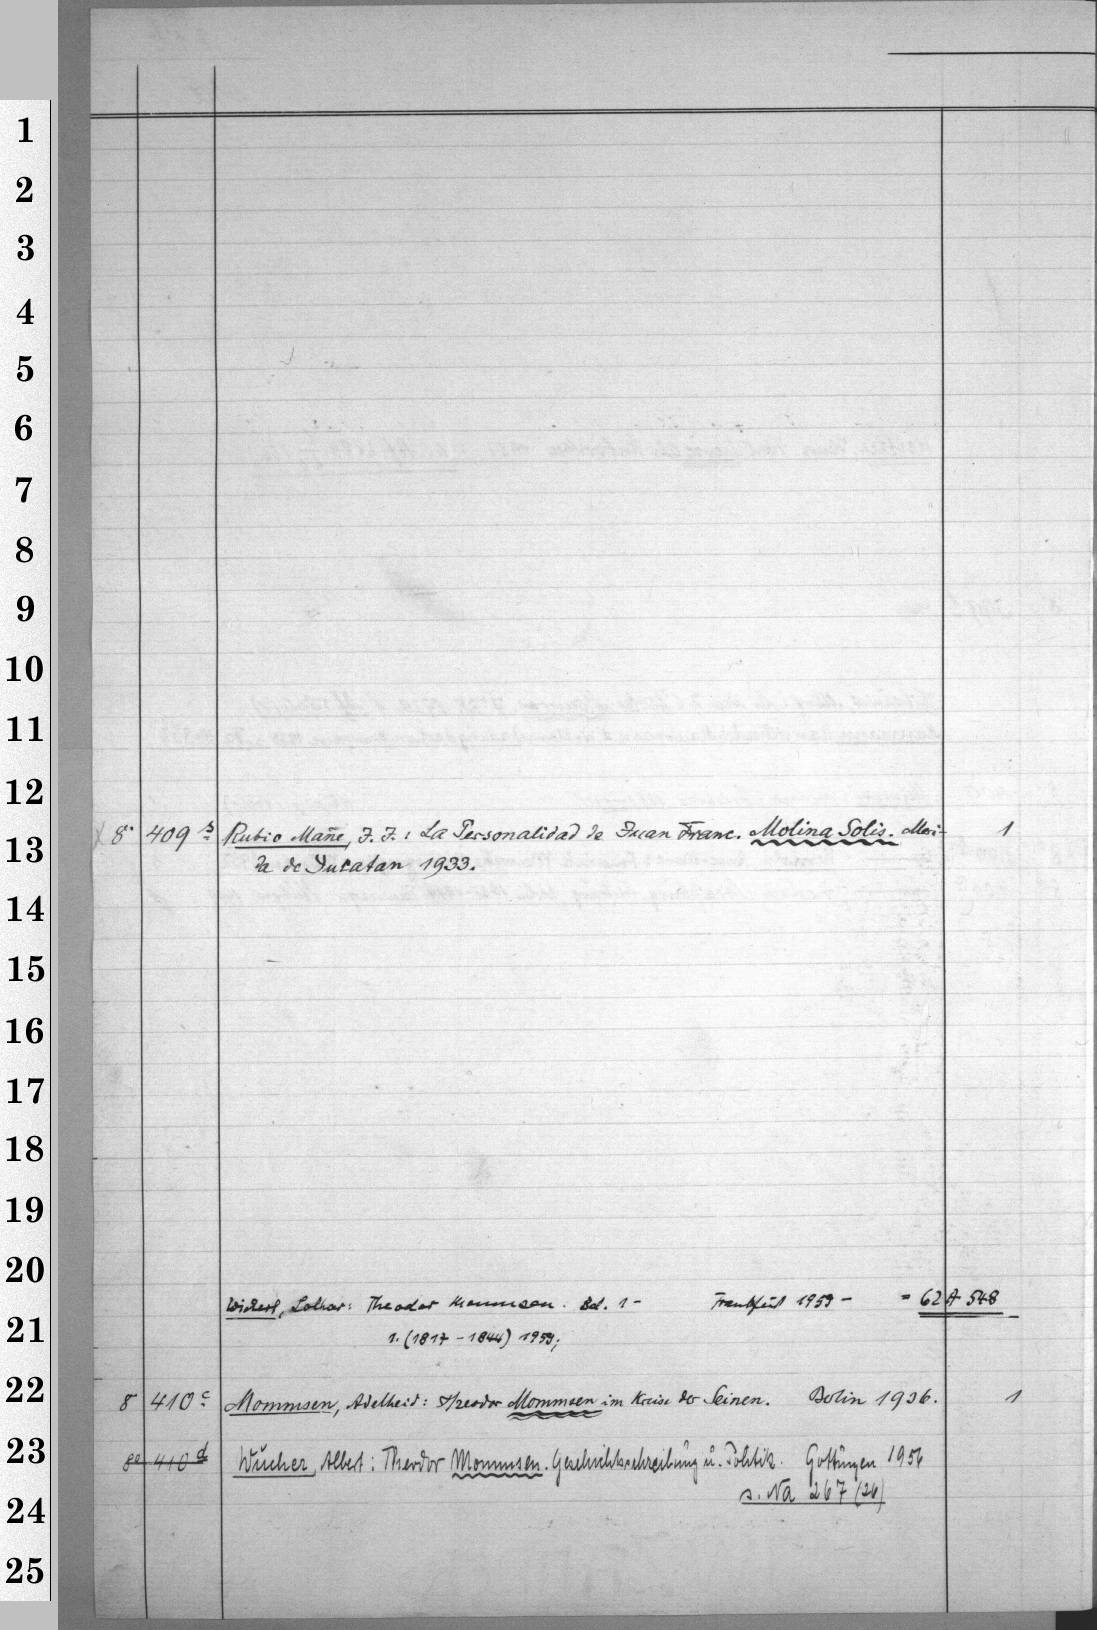 1
2
3
4
5
6
7
8
9
10
11
12
8° 409 b Rubio Mañe, J. J.: La Personalidad de Juan Franc. Molina Solis. Meri- 1
13
da de Yucatan 1933.
14
15
16
17
18
19
20
Wickert, Lothar: Theodor Mommsen. Bd. 1- Frankfurt 1959 - = 62 A 548
21
1. (1817 - 1844) 1959;
22
8 410 c Mommsen, Adelheid: Theodor Mommsen im Kreise der Seinen. Berlin 1936. 1
23
8° 410 d Wucher, Albert: Theodor Mommsen. Geschichtsschreibung u. Politik. Göttingen 1956
s. Na 267 (26)
24
25